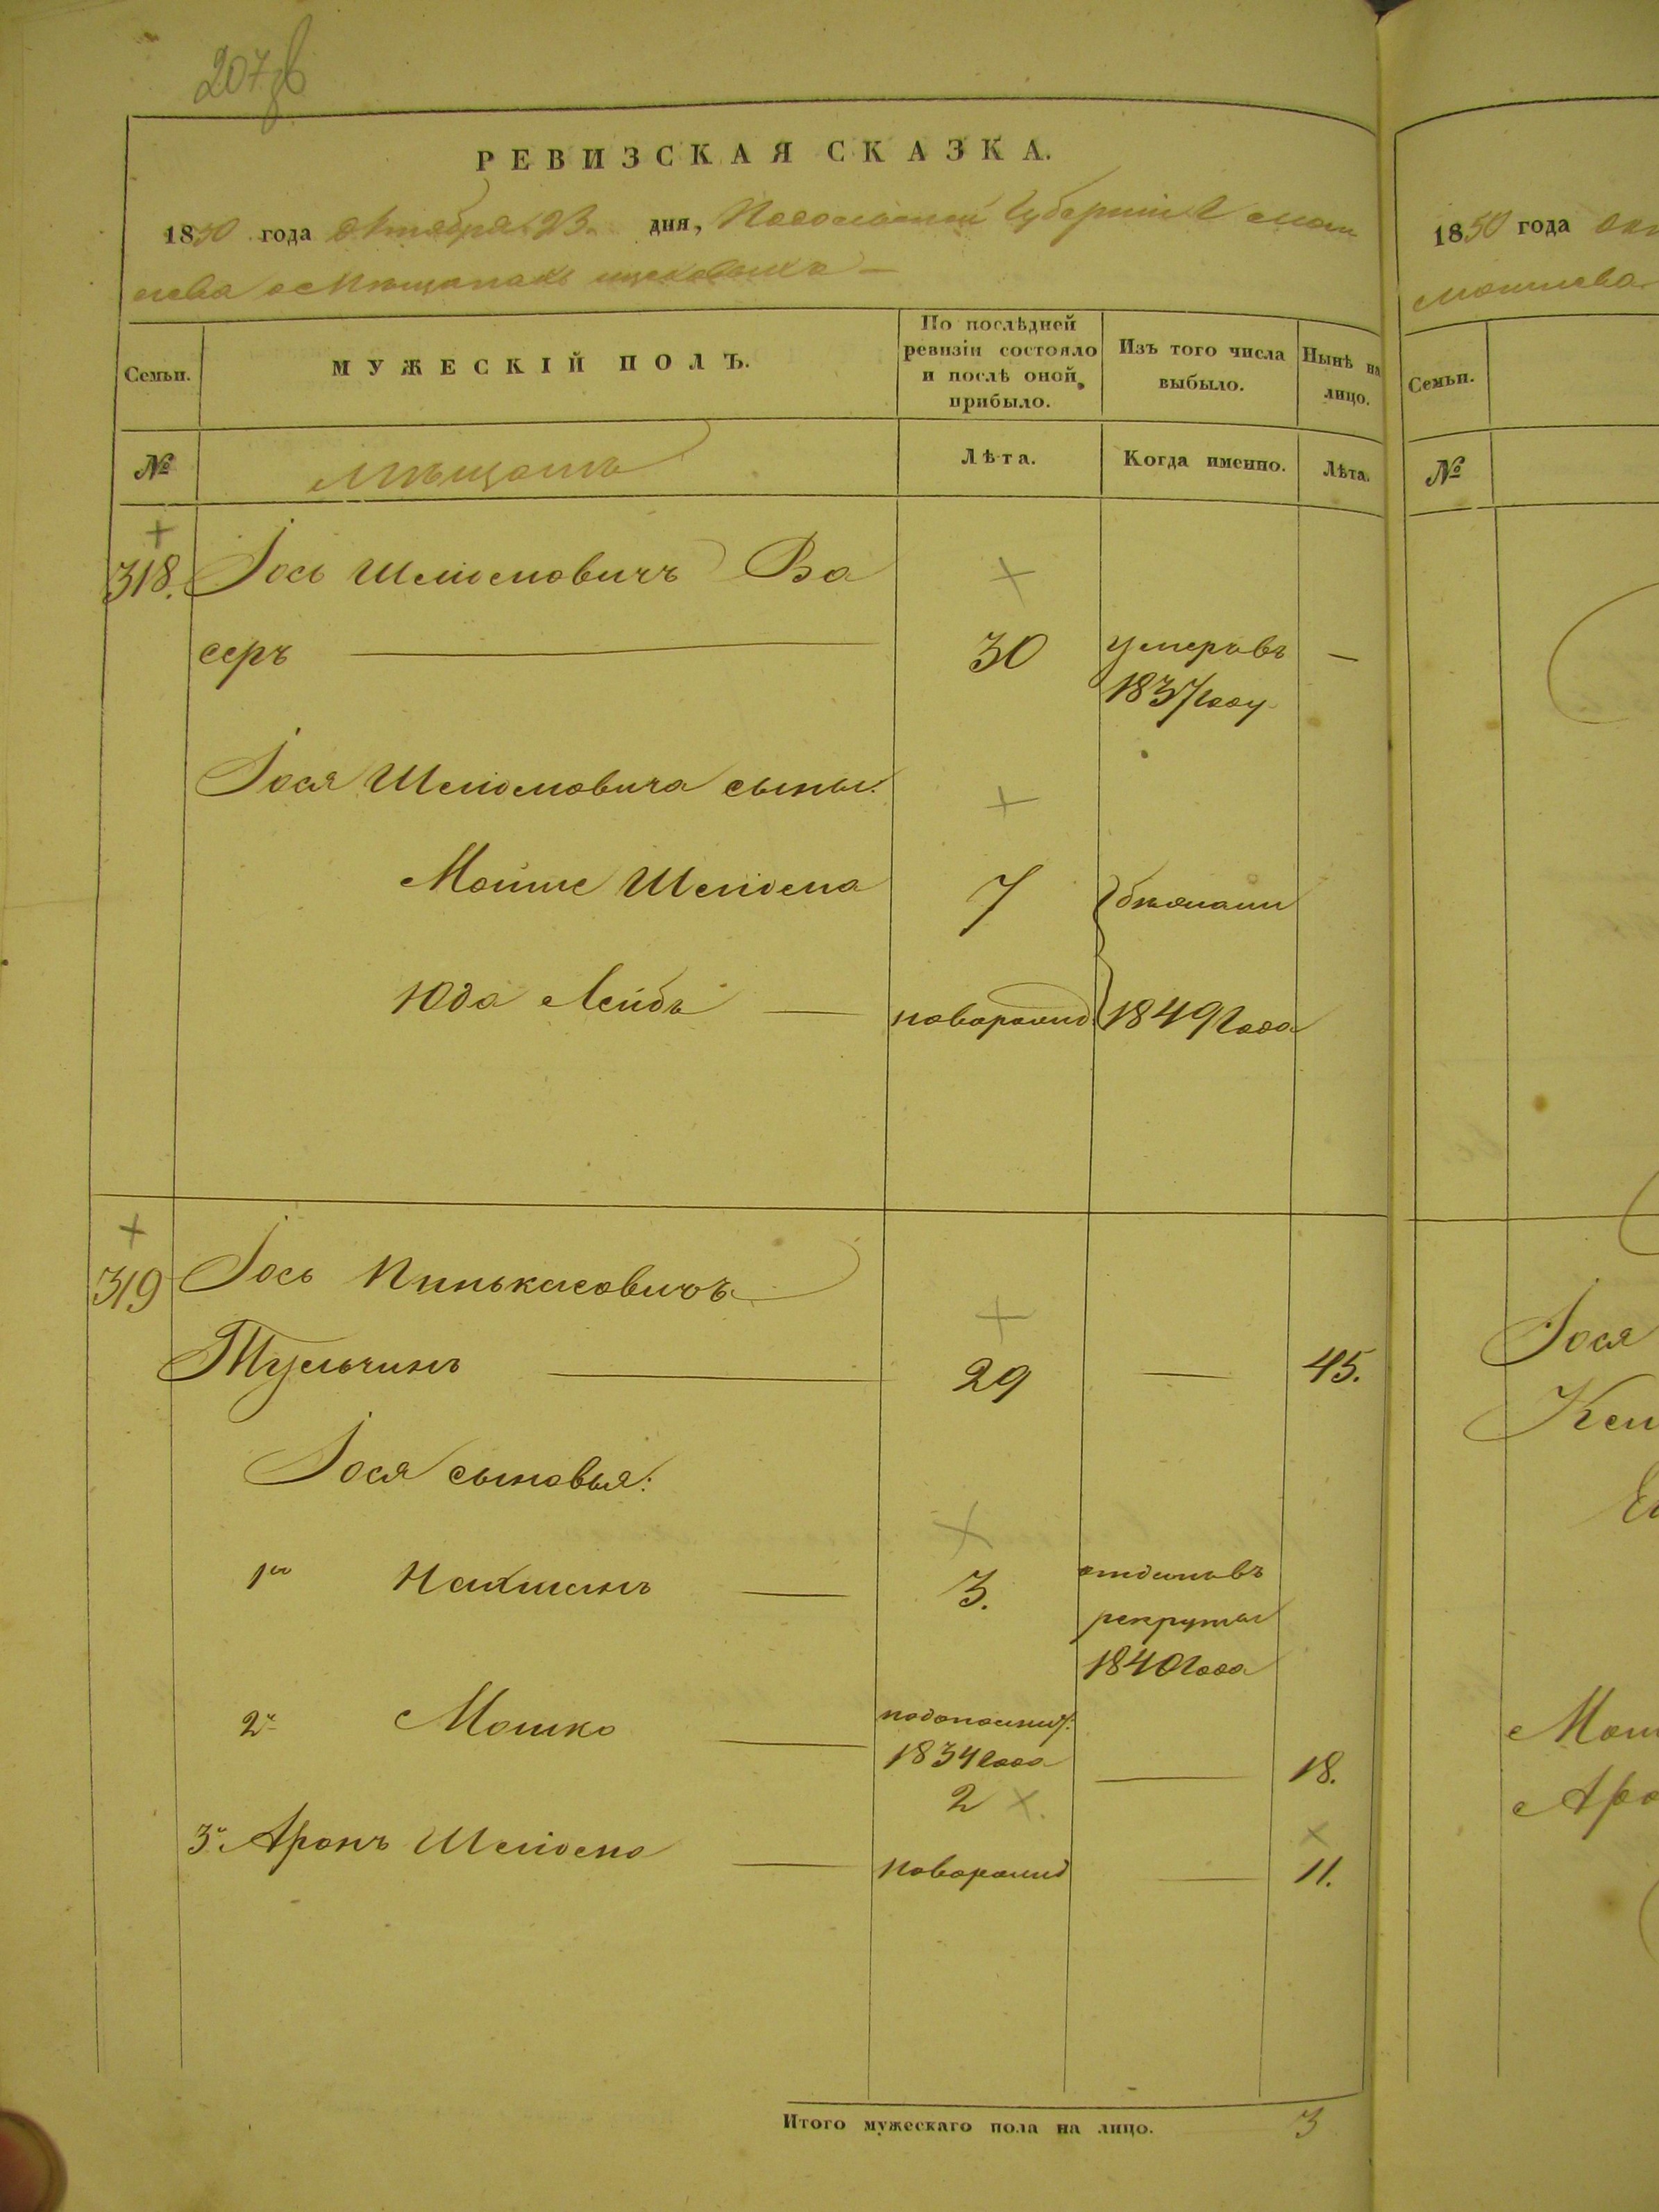 207 об
РЕВИЗСКАЯ СКАЗКА.
1850 года Октября 23. дня, Подольской Губерніи
о Мѣщанахъ
Семьи.
МУЖЕСКІЙ ПОЛЪ.
По послѣдней ревизіи состояло и послѣ оной прибыло.
Изъ того числа выбыло.
Нынѣ на лицо.
№
Мѣщанъ
Лѣта.
Когда именно.
Лѣта.
318. Іось Шліомовичъ Ва
серъ 30 умеръ въ —
1837 году
Іося Шліомовича сыны:
Мойше Шліома 7 бѣжали
Юда Лейбъ новорожд 1849 года
319 Іось Пинькасовичъ
Тульчинъ 29 — 45.
Іося сыновья:
1й Нахманъ 3. отданъ въ
рекруты
1840 года
2й Мошко
1834 года 18.
2
3й Аронъ Шліома новорожд 11.
Итого мужескаго пола на лицо. 3
1850 года
Семьи.
№
Іося